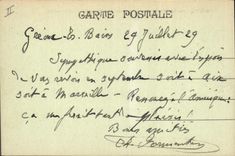 II
CARTE POSTALE
Gréoux-les-Bains 29 Juillet 29
Sympathique souvenir avec l'espoir
de vous revoir en septembre soit à Aix
soit à Marseille - Renoncez à l'Amérique
ça me ferait tant plaisir!
Bonnes amitiés